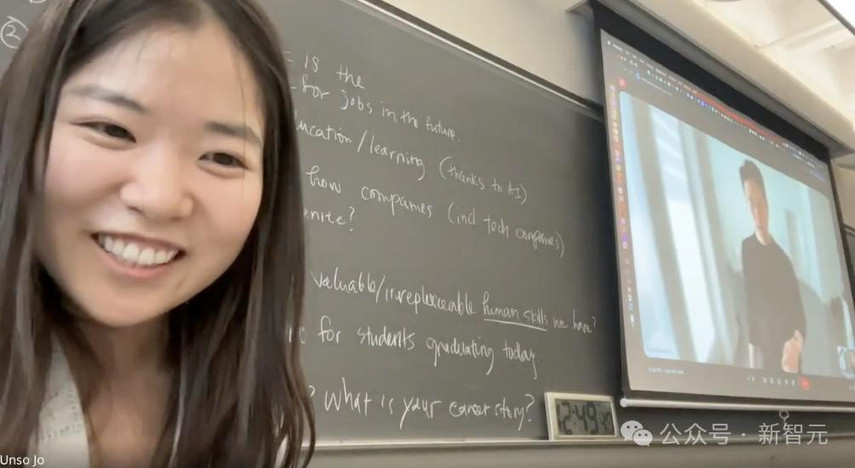 ②
is the
for jobs in the future.
ucation/learning (thanks to AI)
how companies (incl tech companies)
valuable/irrepleceable human skills we have?
for students graduating today
? What is your career story?
12:49
公众号 · 新智元
Unso Jo